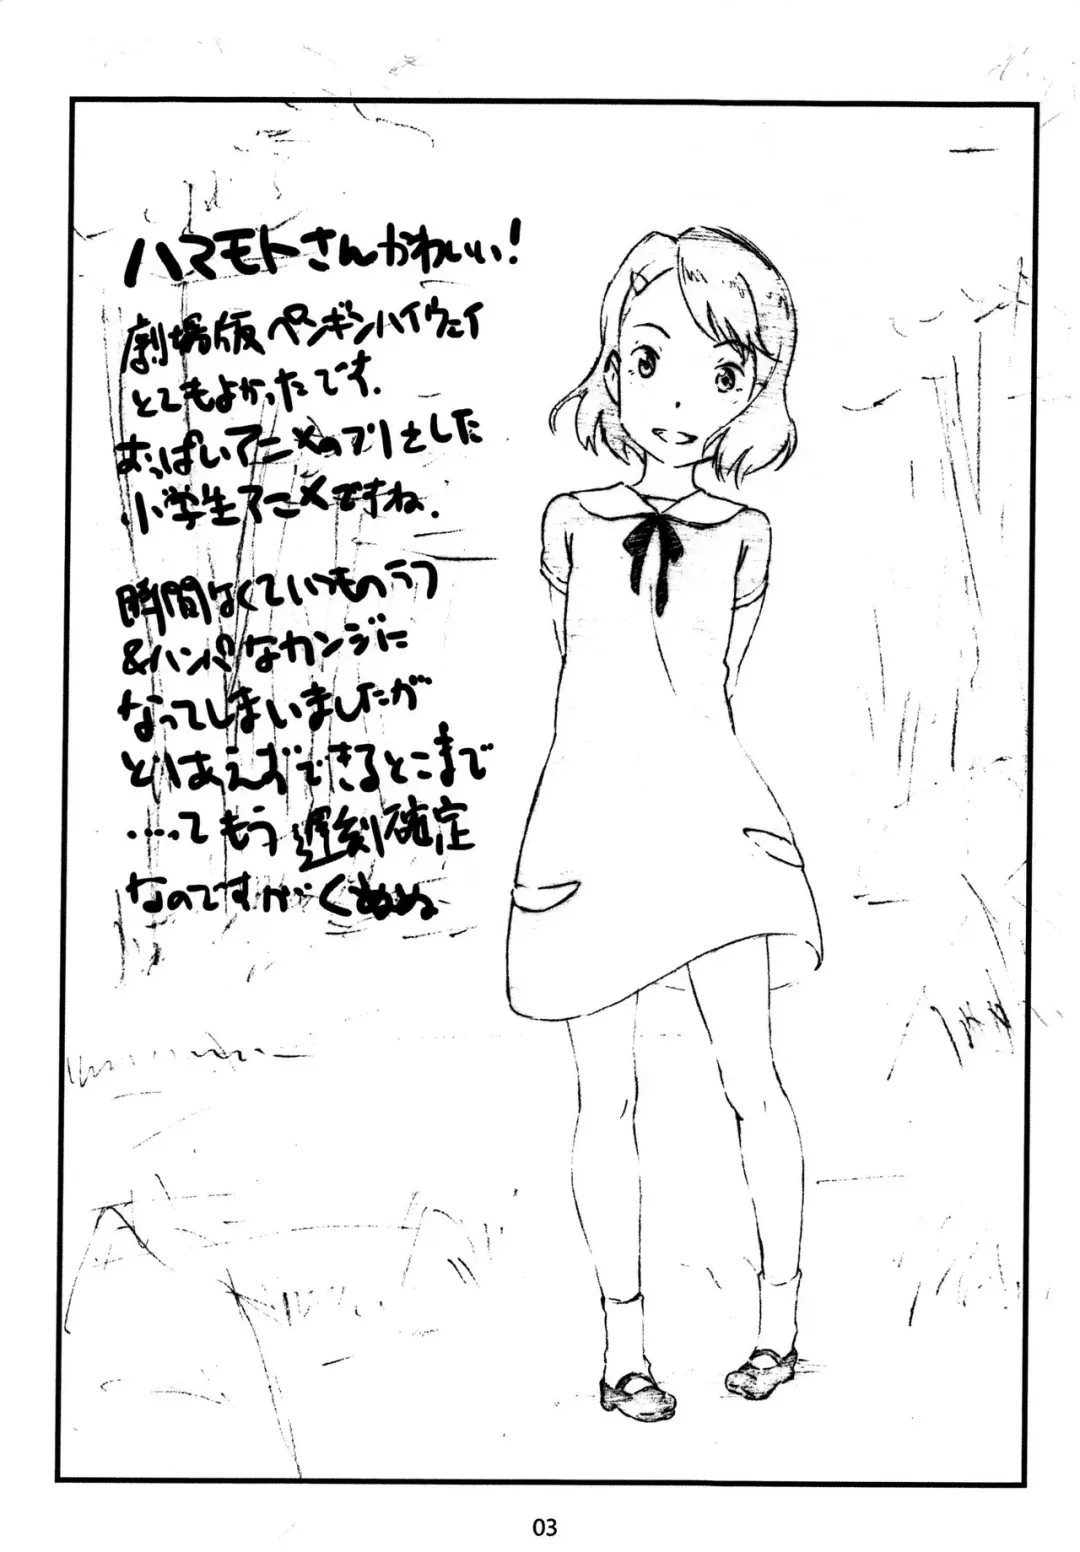 ハマモトさんかわいい!
劇場版ペンギンハイウェイ
とてもよかったです.
おっぱいアニメのフリをした
小学生アニメですね.
時間なくていつものラフ
&ハンパなカンジに
なってしまいましたが
とりあえずできるとこまで
.....てもう遅刻確定
なのですがぐぬぬ
03